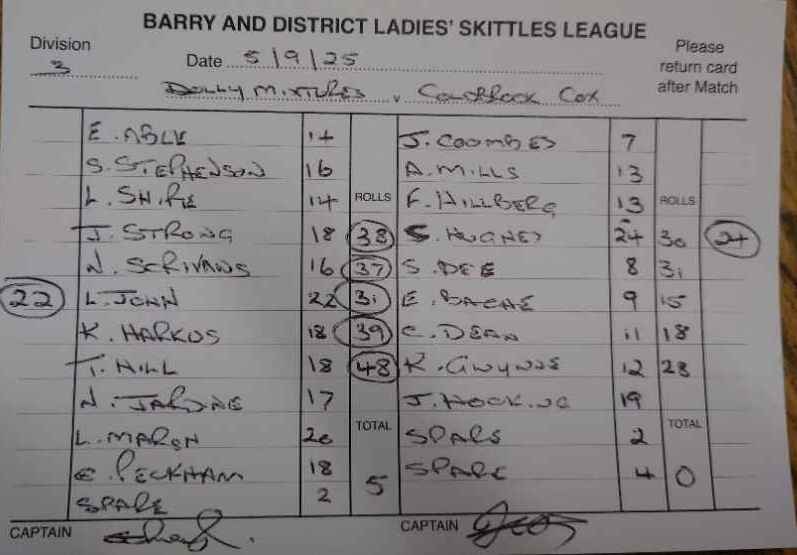 BARRY AND DISTRICT LADIES' SKITTLES LEAGUE
Division 3 Date 5/9/25 Please return card after Match
Dolly Mixtures v Coldbrook Cox
E. ABLE 14 J. COOMBES 7
S. STEPHENSON 16 A. MILLS 13
L. 14 ROLLS F. HILLBERG 13 ROLLS
J. STRONG 18 38 S. HUGHES 24 30 24
N. SCRIVANS 16 37 S. DEE 8 31
22 L. JOHN 22 31 E. BACHE 9 15
K. HARKUS 18 39 C. DEAN 11 18
T. HILL 18 48 K. GWYNNE 12 28
N. JARDINE 17 J. HOCKING 19
L. 20 TOTAL SPARE 2 TOTAL
E. PECKHAM 18 5 SPARE 4 0
SPARE 2
CAPTAIN CAPTAIN